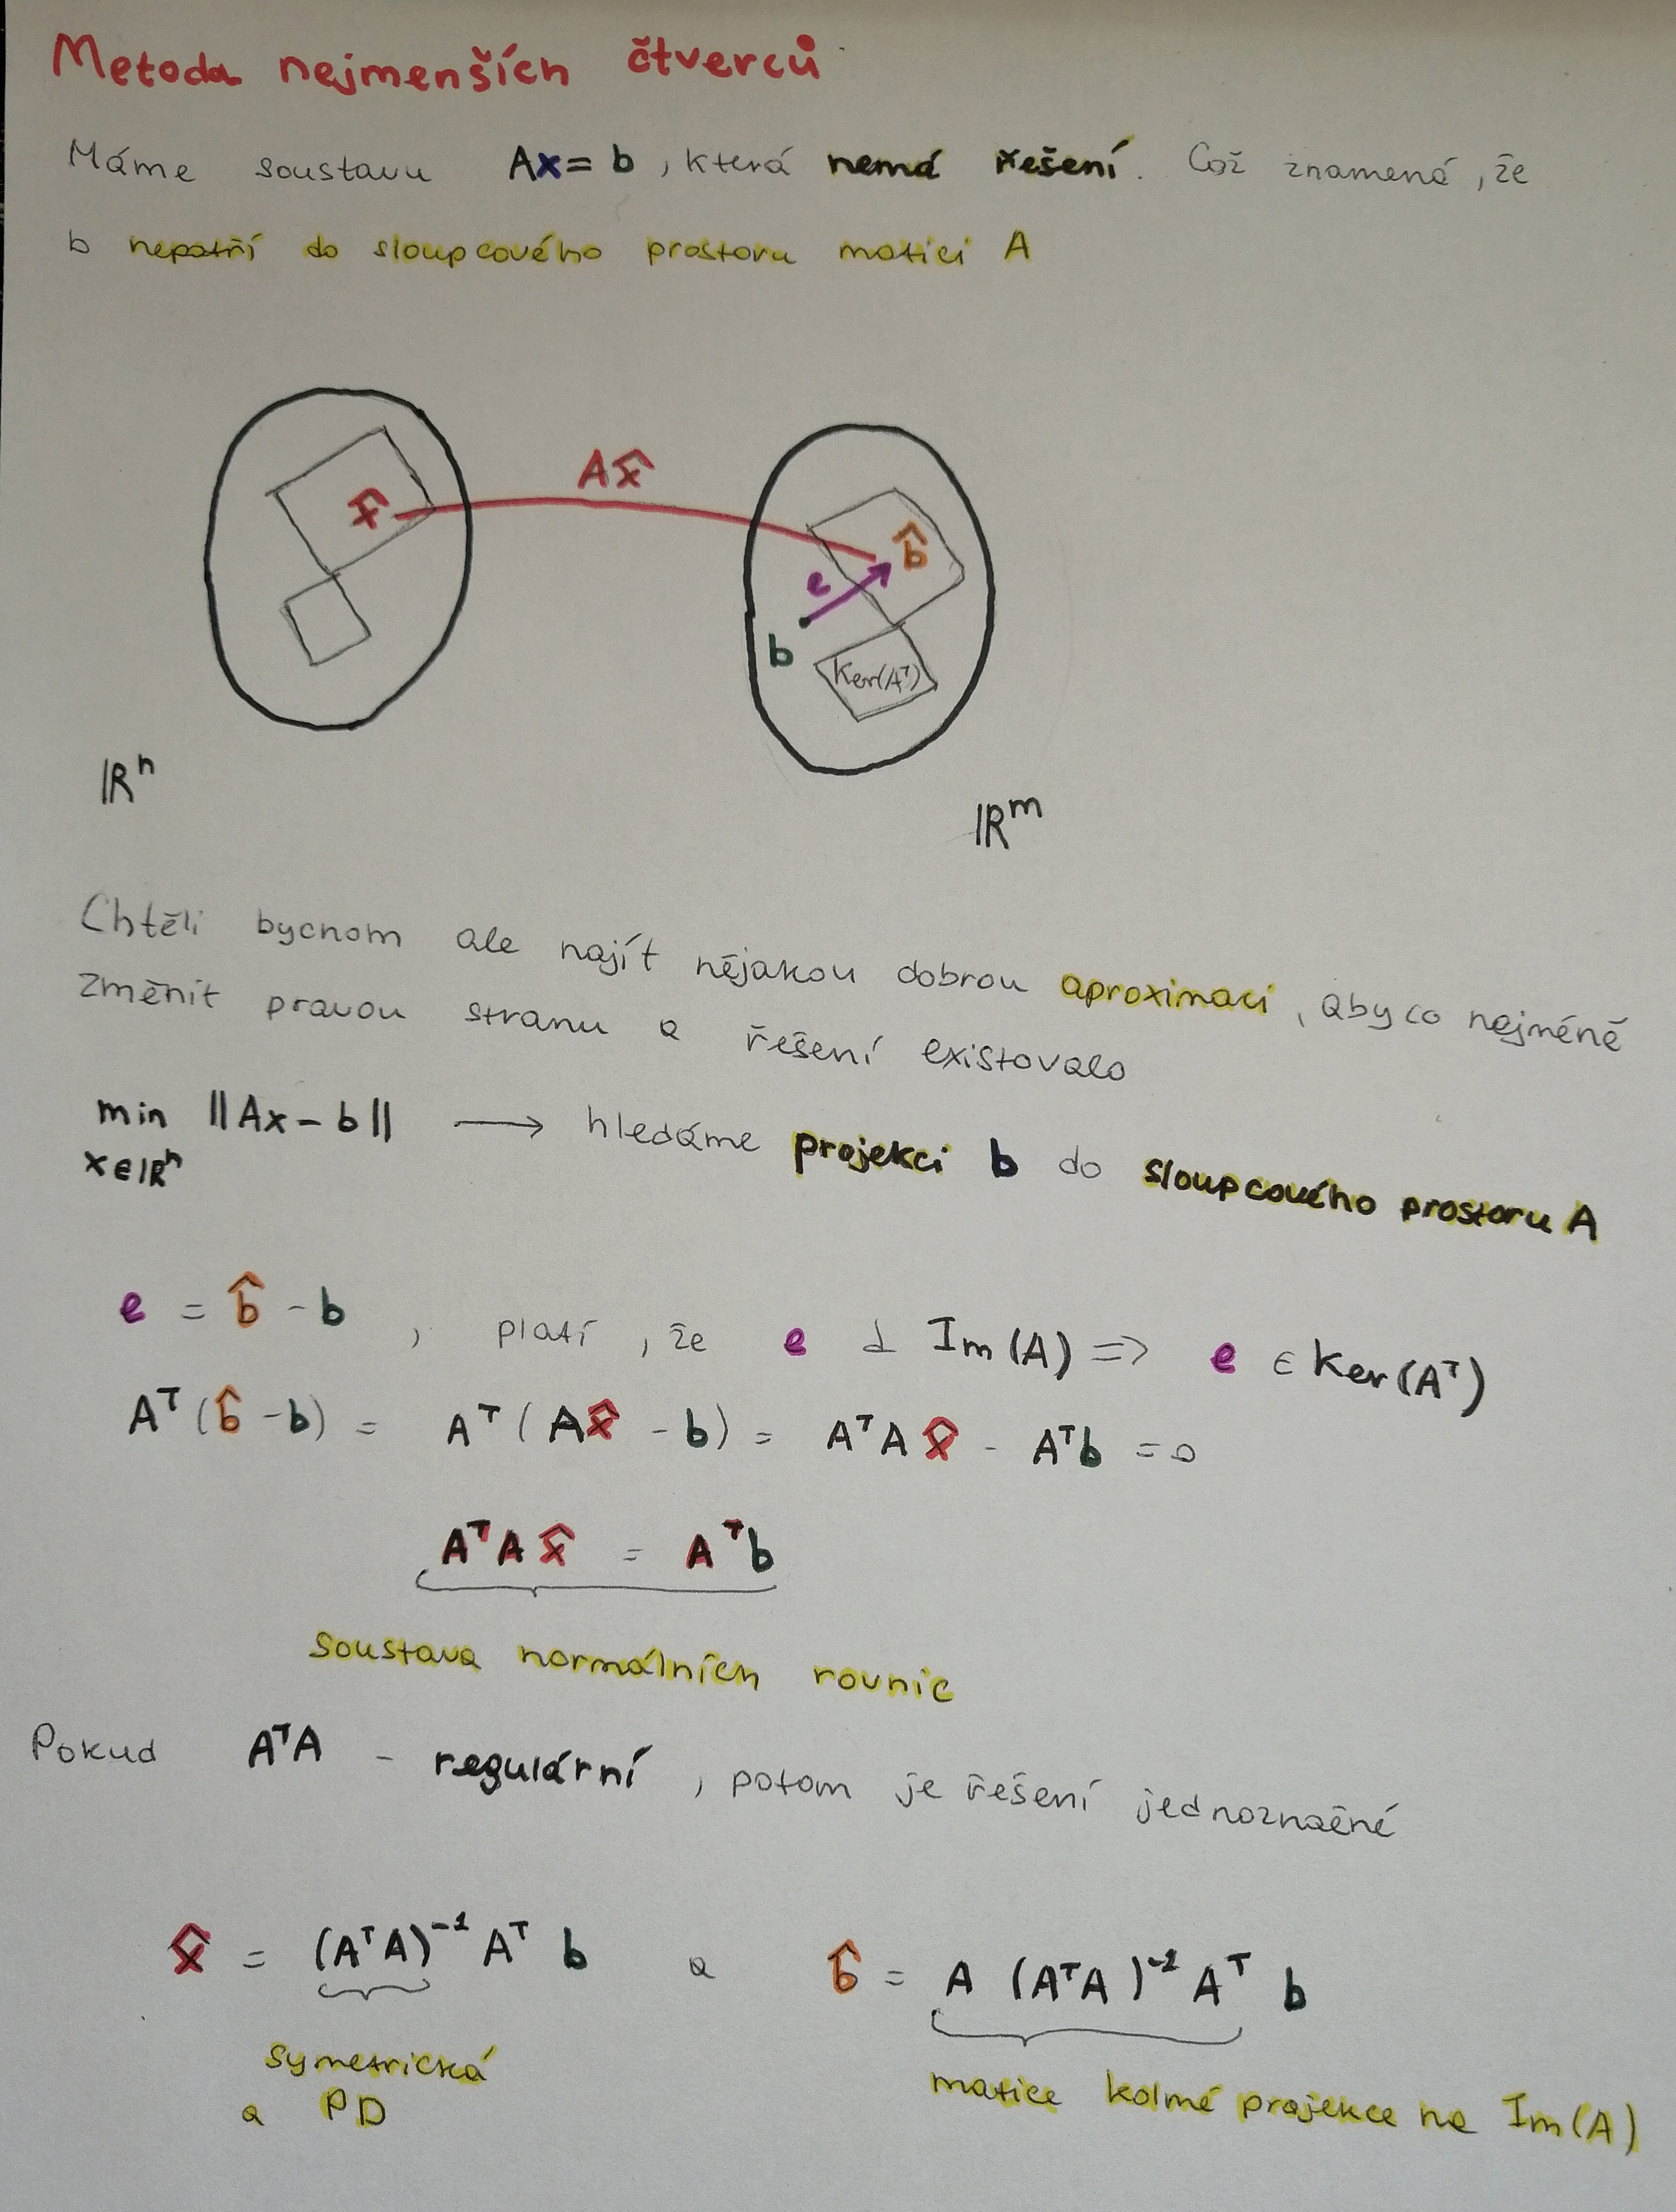 Metoda nejmenších čtverců
Máme soustavu Ax = b, která nemá řešení. Což znamená, že
b nepatří do sloupcového prostoru matici A
Ax̂
x̂
b̂
e
b
Ker(Aᵀ)
ℝⁿ
ℝᵐ
Chtěli bychom ale najít nějakou dobrou aproximaci, aby co nejméně
změnit pravou stranu a řešení existovalo
min ||Ax - b|| → hledáme projekci b do sloupcového prostoru A
x∈ℝⁿ
e = b̂ - b, platí, že e ⊥ Im(A) => e ∈ Ker(Aᵀ)
Aᵀ(b̂ - b) = Aᵀ(Ax̂ - b) = AᵀAx̂ - Aᵀb = 0
AᵀAx̂ = Aᵀb
Soustava normálních rovnic
Pokud AᵀA - regulární, potom je řešení jednoznačné
x̂ = (AᵀA)⁻¹Aᵀ b a b̂ = A (AᵀA)⁻¹Aᵀ b
symetrická
a PD
matice kolmé projekce na Im(A)